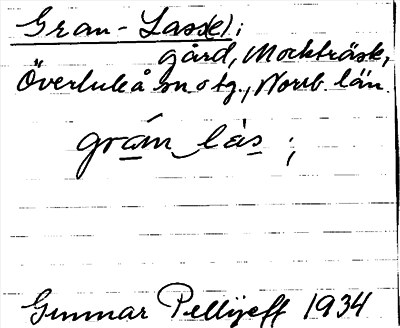 Gran-Lass(e);
gård, Mockträsk,
Överluleå sn o tg., Norrb. län.
grán‿làs ;
Gunnar Pellijeff 1934